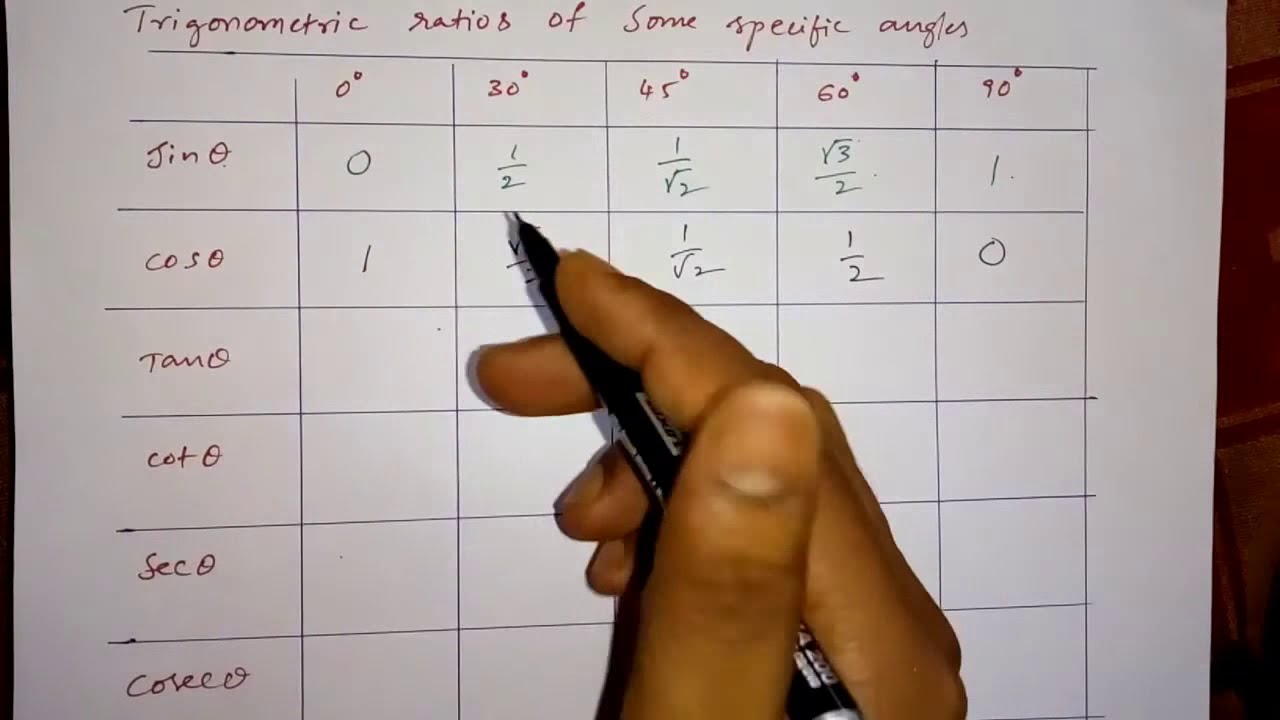 Trigonometric ratios of Some specific angles
0° 30° 45° 60° 90°
Sinθ 0 1/2 1/√2 √3/2 1
cosθ 1 1/√2 1/2 0
Tanθ
cotθ
Secθ
Cosecθ